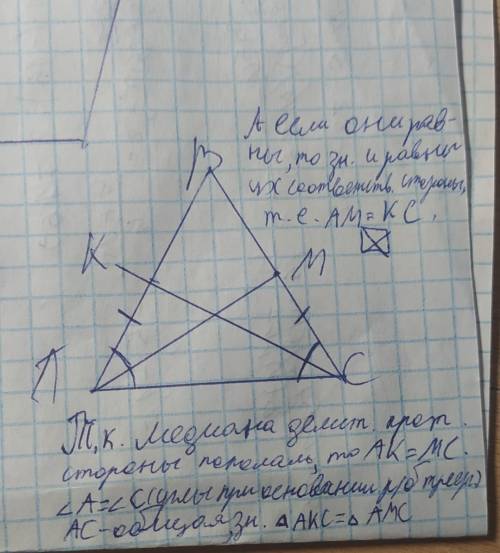 А если они рав-
ны, то зн. и равны
их соответств. стороны,
т. е. AM = KC.
B
K
M
A
C
Т. к. Медиана делит. прот.
стороны пополам, то AK = MC.
∠A=∠C (углы при основании р/б треуг.)
AC-общая, зн. △AKC = △AMC